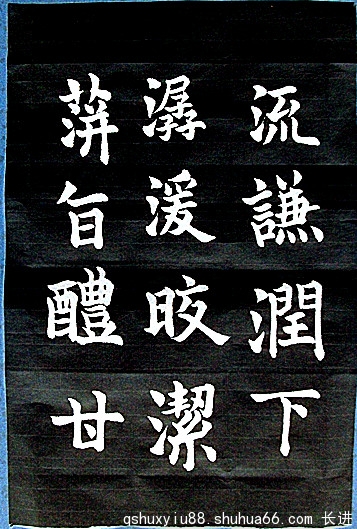 流謙潤下
潺湲皎潔
萍旨醴甘
qshuxyiu88.shuhua66.com 长进